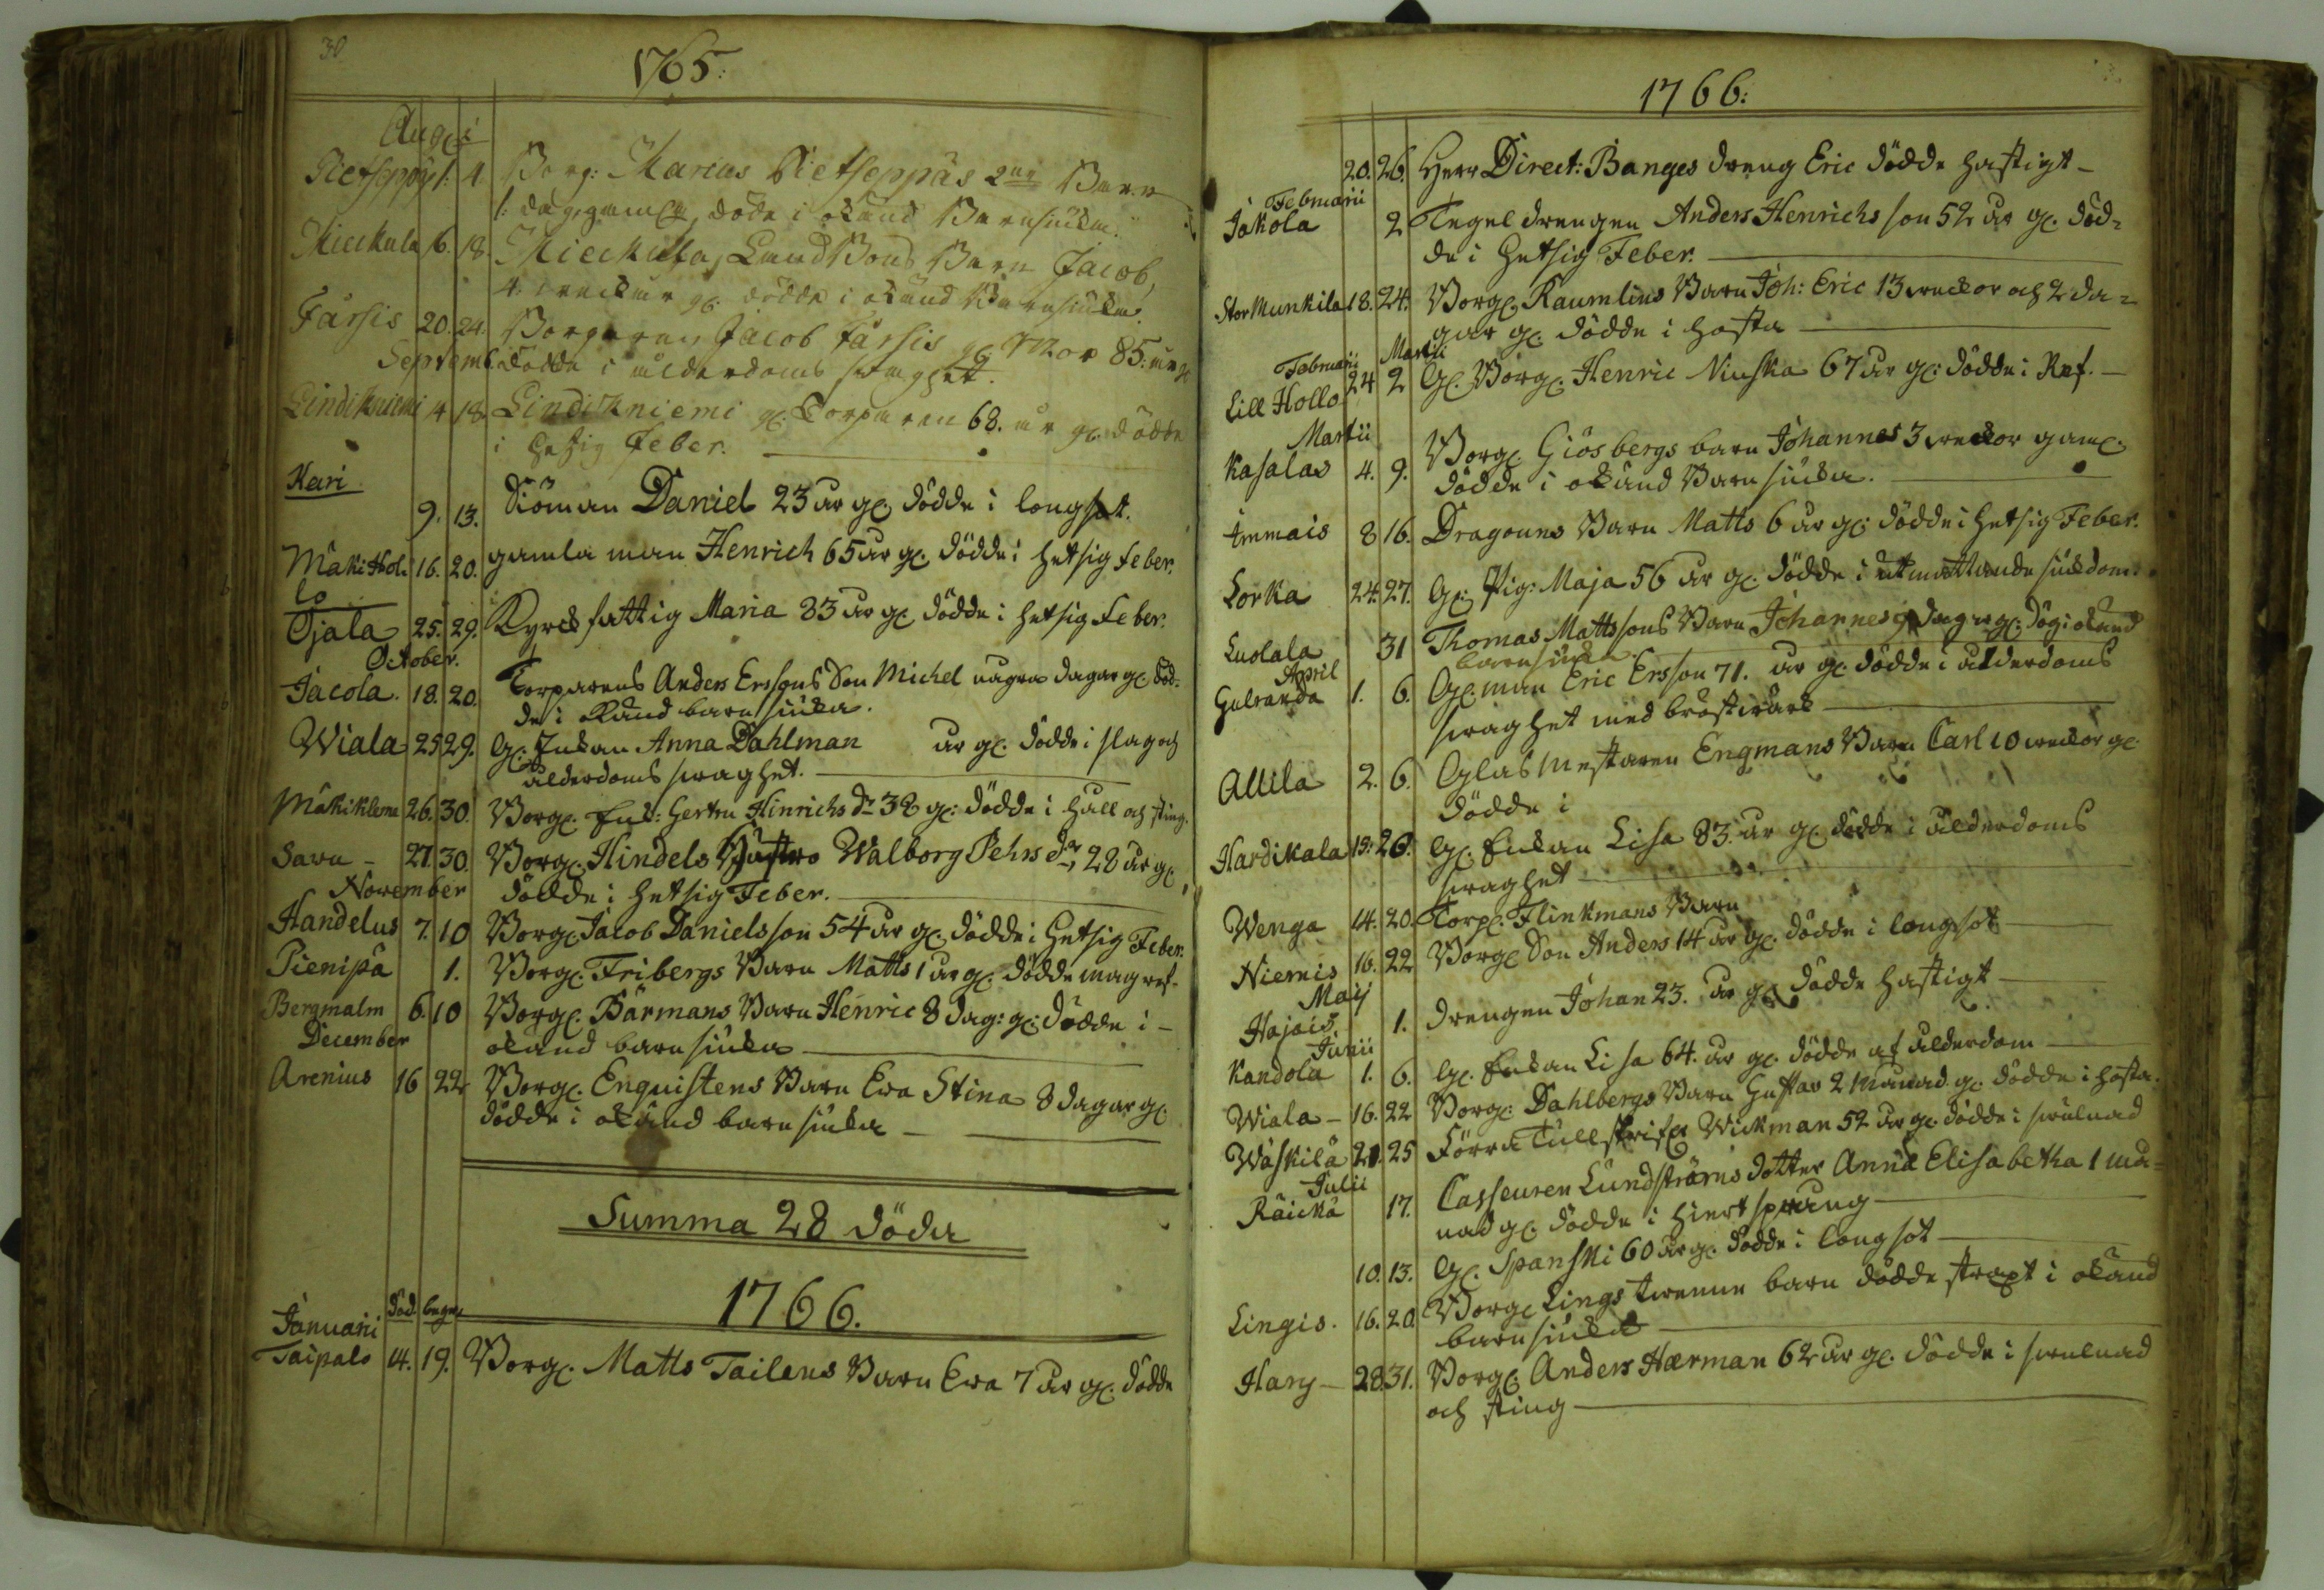 30
1765:
Aug:i
Pietseppä 1. 4. Borg: Marias Pietseppäs 2ne Barn
1. dag gamla, döde i okänd Barnsiuka.
Mieckula 6. 18. Mieckula, Land Bons Barn Jacob,
4. weckur gl. dödde i okänd Barnsiuka.
Farsis 20. 24. Borgaren Jacob Farsis gl. Mor 85. år gl
Septemb. dödde i ålderdoms swaghet.
Lindikniemi 4 18. Lindikniemi gl. Torparen 68. år gl. dödde
i hetzig Feber.
Kari
9. 13. Siöman Daniel 23 år gl. dödde i longsot.
Mäki Hol- 16. 20. gamla man Henrich 65 år gl. dödde i hetsig feber.
lo
Ojala 25. 29. Kyrck fattig Maria 83 år gl. dödde i hetsig Feber.
October.
Jacola. 18. 20. Torparens Anders Erssons Son Michel några dagar gl. död-
de i okänd barnsiuka.
Wiala 25 29. Gl. Enkan Anna Dahlman år gl. dödde i slag och
ålderdoms swaghet.
Mäkiklema 26. 30. Borgl. Enk: Gertru Hinrichs dr 38 gl: dödde i håll och sting.
Savu - 27. 30. Borgl. Hindels Hustro Walborg Pehrs dr, 28 år gl.
November dödde i hetsig Feber.
Handelus 7. 10 Borgl. Jacob Danielsson 54 år gl. dödde i hetsig Feber.
Pienipä 1. Borgl. Fribergs Barn Matts 1 år gl. dödde mag ref.
Bergmalm 6. 10 Borgl. Bärmans Barn Henric 8 dag: gl: dödde i -
December okänd barnsiuka
Arenius 16 22 Borgl. Enquistens Barn Ewa Stina 8 dagar gl.
dödde i okänd barn siuka
Summa 28 döda
1766.
Januari död. begr.
Taipalo 14. 19. Borgl. Matts Tailens Barn Ewa 7 år gl. dödde
1766:
20. 26. Herr Direct: Banges dreng Eric dödde hastigt -
Februarii
Jakola 2 Tegel drengen Anders Henrichs son 52 år gl. död-
de i hetsig Feber.
Stor Munkila 18. 24. Borgl. Raumlins Barn Joh: Eric 13 weckor och 2 da-
gar gl. dödde i hosta
Februarii Martii
Lill Hollo 24 2 Gl. Borgl. Henric Niuska 67 år gl: dödde i Ref. -
Martii
Kasalas 4. 9. Borgl. Giösbergs barn Johannes 3 weckor gaml.
dödde i okänd Barn siuka.
Ammais 8 16. Dragouns Barn Matts 6 år gl: dödde i hetsig Feber.
Lorka 24. 27. Gl: Pig: Maja 56 år gl. dödde i utmattande siukdom.
Luolala 31 Thomas Mattssons Barn Johannes 9 dagar gl: dög i okänd
barnsiuka.
April
Gulranda 1. 6. Gl. man Eric Ersson 71. år gl. dödde i ålderdoms
swaghet med bröstwärk
Allila 2. 6. Glas Mestaren Engmans Barn Carl 10 weckor gl.
dödde i
Hardikala 19. 26. Gl. Enkan Lisa 83. år gl. dödde i ålderdoms
swaghet
Wenga 14. 20. Torp: Flinkmans Barn
Niemis 16. 22 Borgl. Son Anders 14 år gl. dödde i longsot
Maij
Hajais 1. drengen Johan 23. år gl. dödde hastigt
Junii
Kandola 1. 6. Gl. Enkan Lisa 64. år gl. dödde af ålderdom
Wiala - 16. 22 Borgl: Dahlbergs Barn Gustav 2 Månad gl. dödde i hosta.
Wäskilä 21. 25 Förra Tullskrifer Wickman 52 år gl. dödde i swulnad
Julii
Räickä 17. Casseuren Lundströms dotter Anna Elisabetha 1 må-
nad gl. dödde i hiertsprång
10. 13. Gl. Spanski 60 år gl. dödde i longsot
Lingis. 16. 20. Borgl. Lings twenne barn dödde straxt i okänd
barnsiuka
Hary - 28 31. Borgl. Anders Hærman 62 år gl. dödde i swulnad
och sting